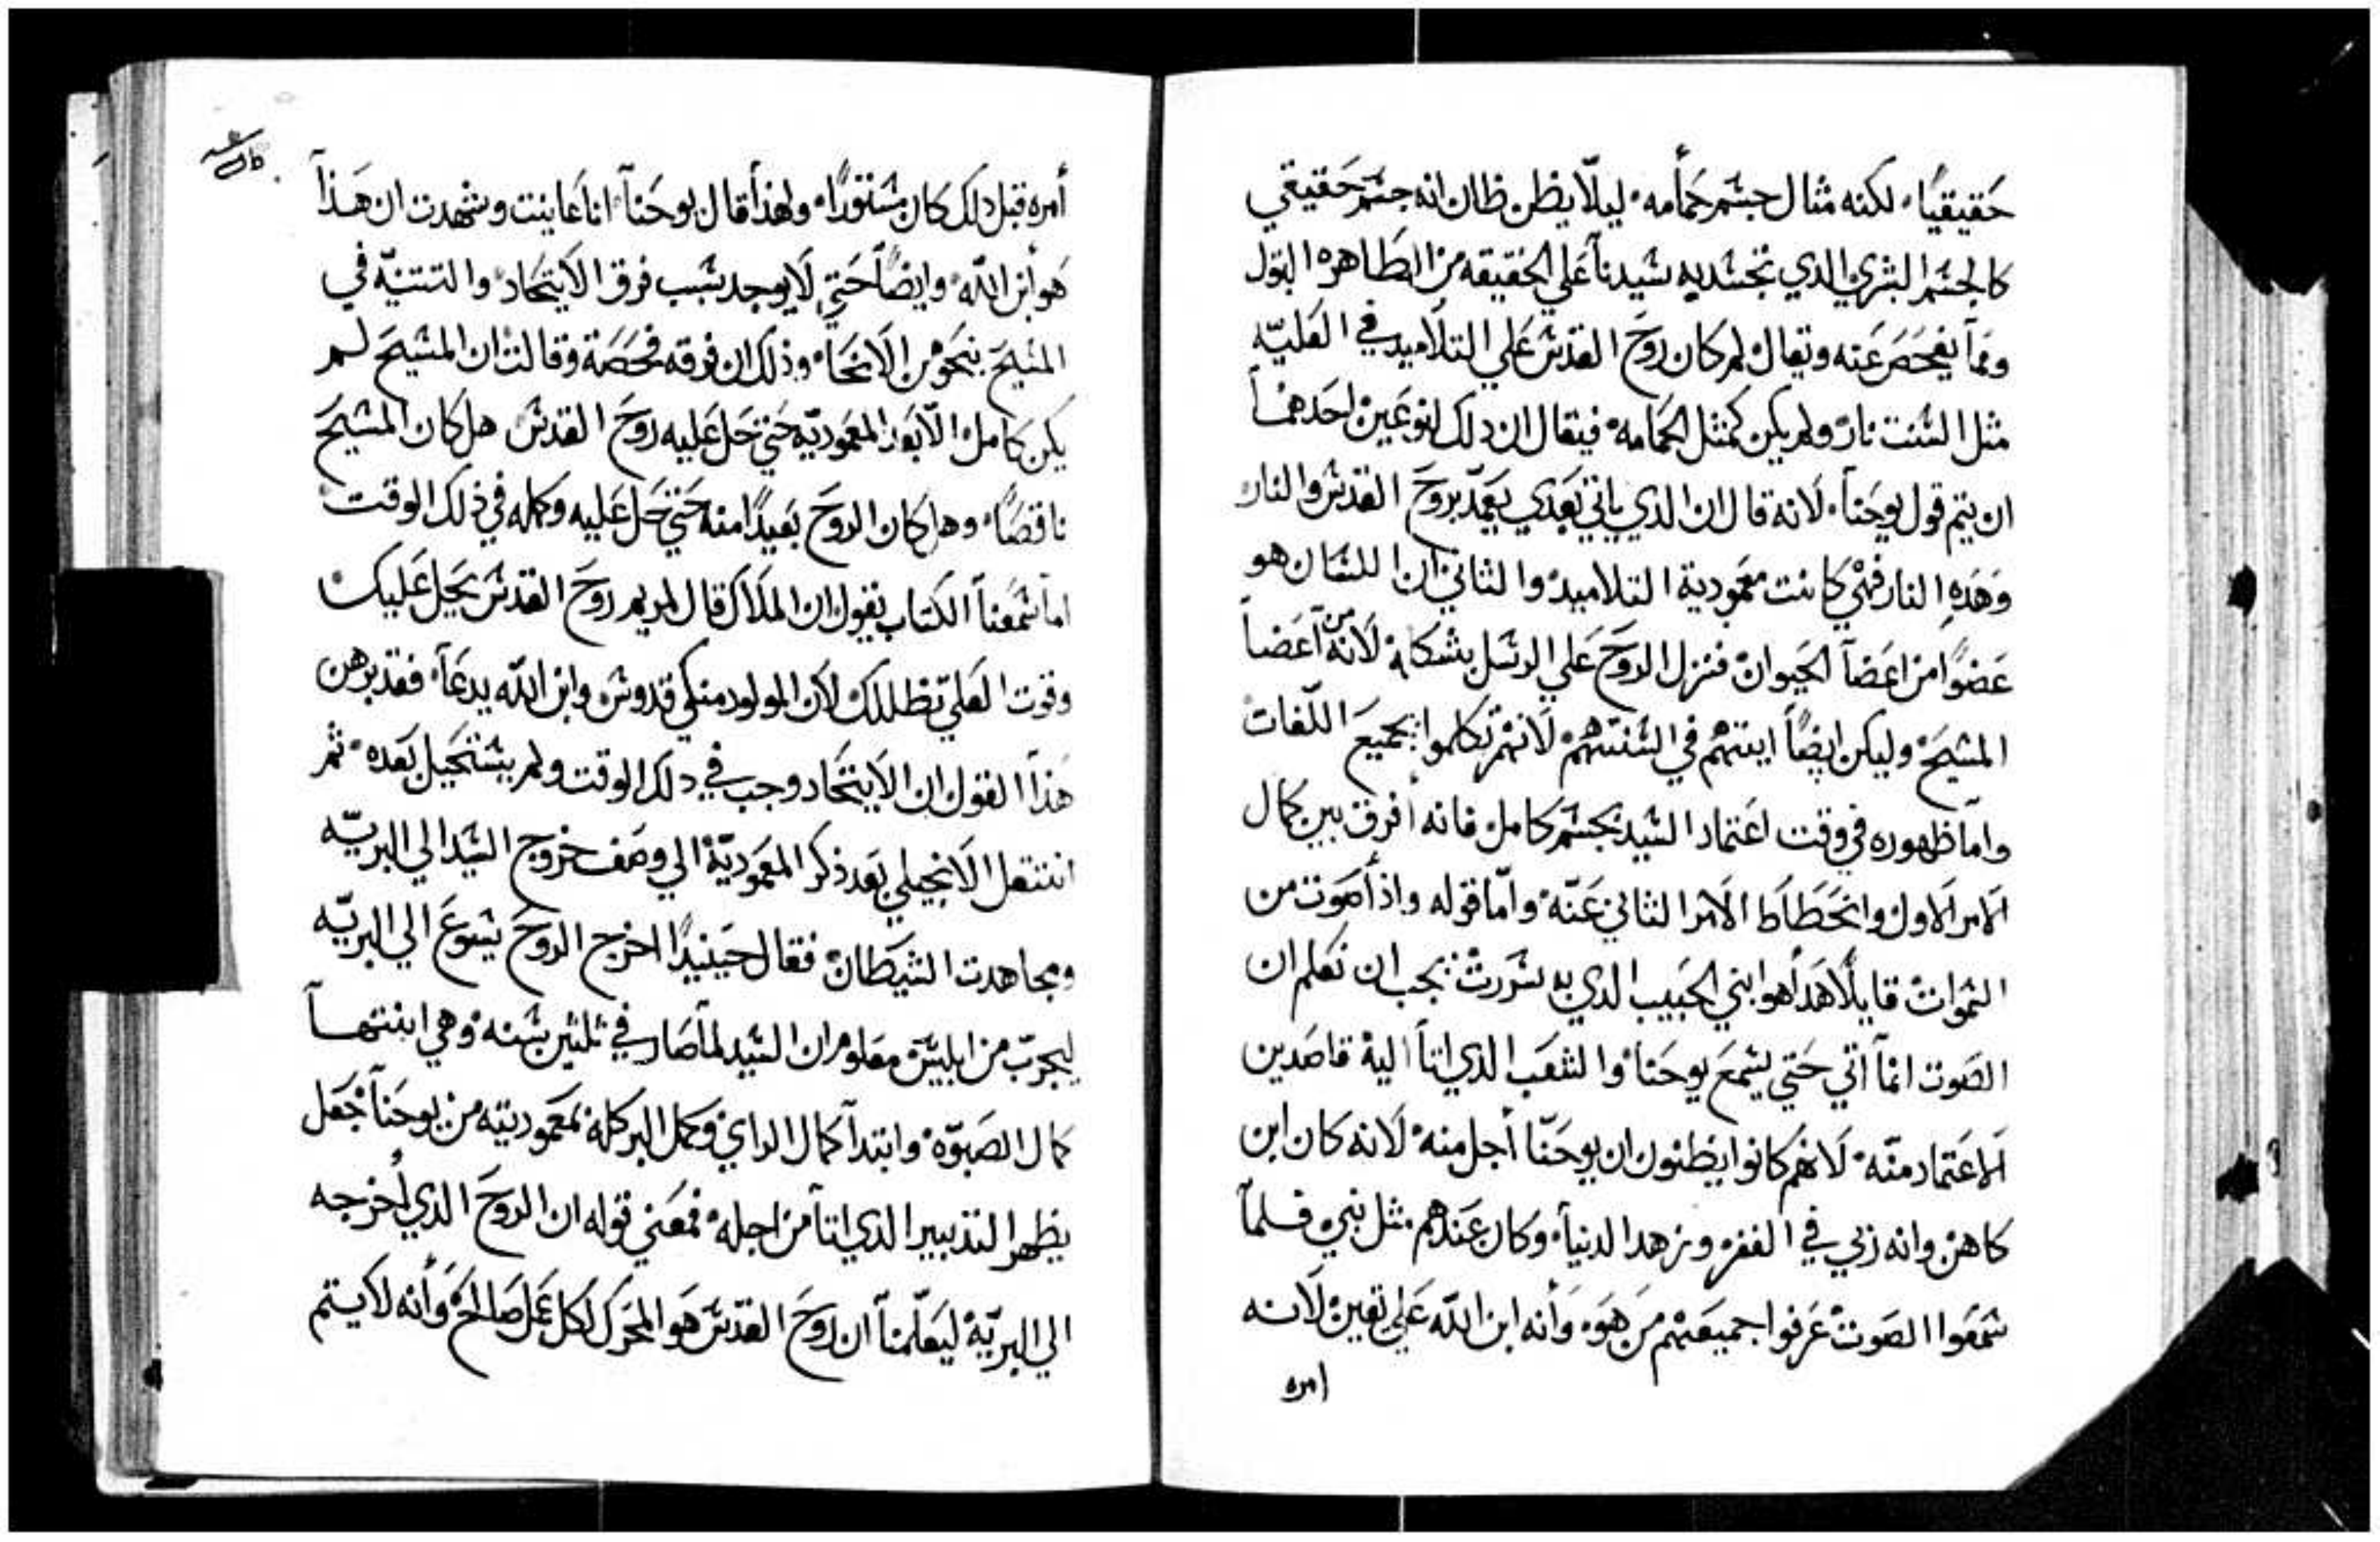 حَقيقيًا، لكنه مثال جسَم حَمأمه، ليلّا يظن ظان انه جسَم حَقيقي
كالجسَم البشري الدي تجسَد به سَيدنآ عَلي الحَقيقه من الطاهره البتول
ومَمآ يفحَصَ عَنه ويقال لم كان روحَ القدسَ عَلي التلآميد في العَليّه
مثل السَنت نار ولم يكن كمثل الحَمامه فيقال ان دلك لنوعَين احَدهمَآ
ان يتم قول يوحَنآ، لَانه قال ان الدي ياتي بَعَدي يعَمّد بروحَ القدسَ والنار
وَهَدهِ النار فهي كانت معَمودية التلاميد والثاني ان اللسَان هو
عَضوًا من اعَضآ الحَيوان فنزل الروحَ عَلي الرسَل بشكله لَانهَ من آعَضآ
المسَيحَ وليكن ايضًآ ايتهم في السَنتهم لَانهم تكلموا بجميعَ اللّغات
وامآ ظهوره في وقت اعَتماد السَيد بجسَم كامل فانه أفرق بين كمال
الَامر الَاول وانحَطاط الَامر الثاني عَنّه وامّا قوله واذأ صَوت من
السَموات قايلًا هَدأ هوا بني الحَبيب الدي به سَررت يجب ان نعَلم ان
الصَوت انمآ اتي حَتي يسَمعَ يوحَنا والشعَب الذي اتآ الية قاصَدين
اَلاعَتماد منّه لَانهم كانوا يظنون ان يوحَنّا أجل منه لَانه كان ابن
كاهن وانه زبي في القفر وزهد الدنيآ، وكان عَندهم مثل نبي فلمآ
سَمعَوا الصَوت عَرفوا جميعَهم من هوَه وَأنه ابن اللّه عَلي يقين لَانه
امره
أمره قبل دلك كان مسَتورًا، ولهذأ قال يوحَنآ انا عَاينت وشهدت ان هَذآ
هَو أبن اللّه وايضًآ حَتي لَا يوجد سَبب فرق الَايتحَاد والتتنيّه في
المسَيحَ بنحَو من الَانحَآ، وذلك ان فرقه فحَصَة وقالت ان المسَيحَ لم
يكن كاملا الّا بَعَد المعَموديّه حَتي حَل عَليه روحَ القدسَ هل كان المسَيحَ
ناقصَا، وهل كان الروحَ بَعَيدًا منه حَتي حَل عَليه وكمله في ذلك الوقت
امآ سَمعَنآ الكتاب يقول ان الملَاك قال لمريم روحَ القدسَ يحَل عَليك
وقوت العَلي تظللك لَان المولود منكي قدوسَ وابن اللّه يدعَآ، فقد برهن
هَذآ القول ان الَايتحَاد وجب في دلك الوقت ولم يسَتحَيل بَعَده ثم
انتقل الَانجيلي بَعَد ذكر المعَموديّة الي وصَف خروج السَيد الي البريّه
ومجاهدت الشيطَان فقال حَينيدًا اخرج الروحَ يسَوعَ الي البريّه
ليجرّب من ابليسَ معَلوم ان السَيد لمآ صَار في ثلثين سَنه وهي انتهآ
كمال الصَبوّه وابتدآ كمال الراي وكمل البر كله بمعَموديته من يوحَنآ جعَل
يظهر التدبير الذي اتآ من اجله فمعَني قوله ان الروحَ الذي أخرجه
الي البريّة ليعَلّمنآ ان روحَ القدسَ هَو المحَرك لكل عَمل صَالحَ وَأنه لَا يتم